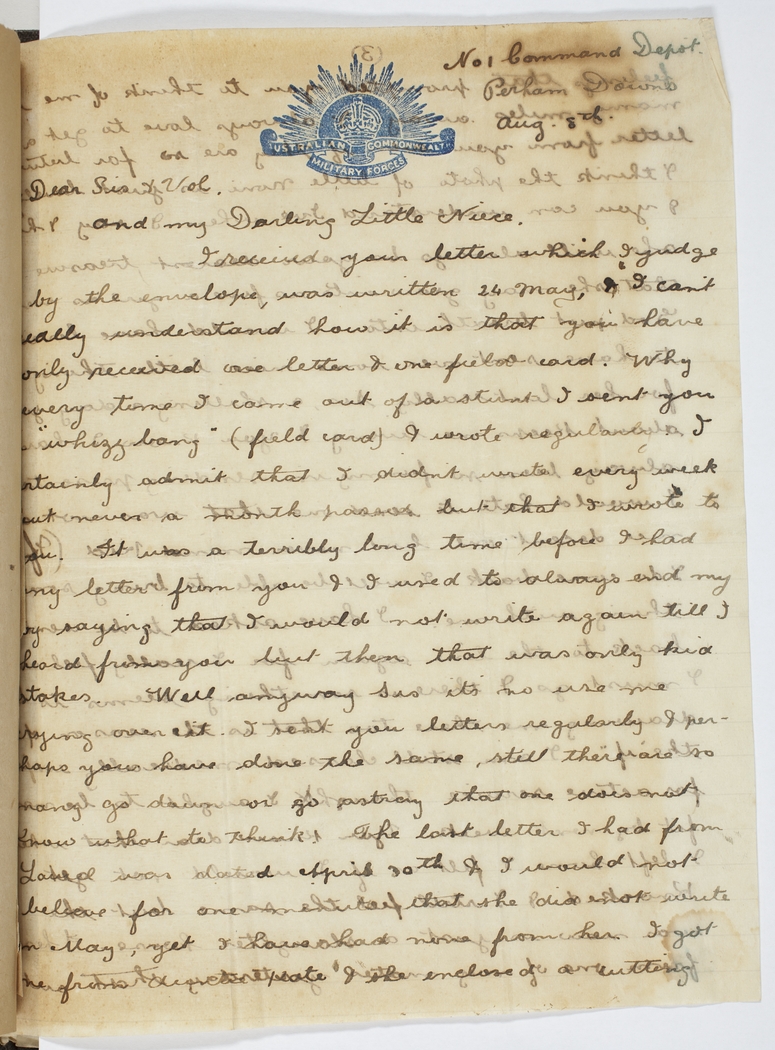 No 1 Command Depot.
Perham Downs
Aug. 3rd.
AUSTRALIAN COMMONWEALTH
MILITARY FORCES
Dear Sis & Vol.
and my Darling Little Niece.
I received your letter which I judge
by the envelope, was written 24 May, & I can't
really understand how it is that you have
only received one letter & one field card. Why
every time I came out of a stunt I sent you
a "whizz bang" (field card) & I wrote regularly, I
certainly admit that I didn't write every week
but never a month passes but that I wrote to
you. It was a terribly long time before I had
any letter from you & I used to always end my
by saying that I would not write again till I
heard from you but then that was only kid
stakes. Well anyway Sis it's no use me
crying over it. I sent you letters regularly & per-
haps you have done the same, still there are so
many go down or go astray that one does not
know what to think! The last letter I had from
was dated April 30th & I would not
believe for one minute that she did not write
in May, yet I have had none from her. I got
one from & she enclosed a cutting